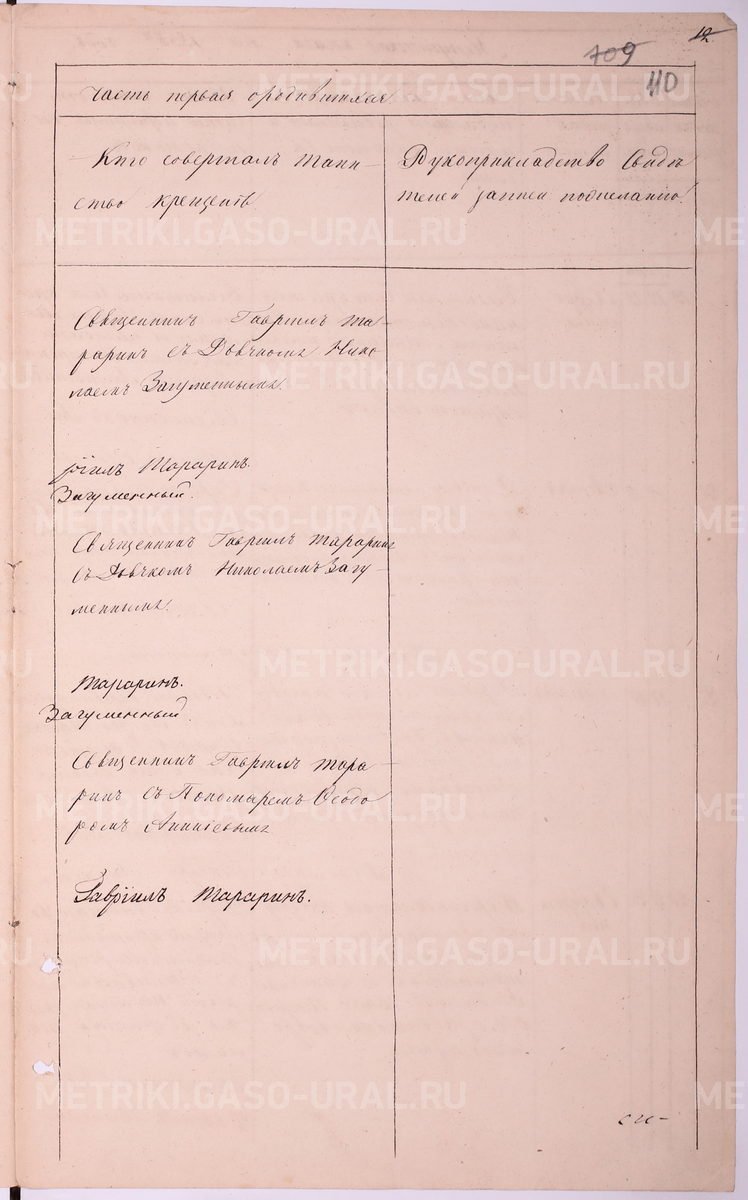 12
709
110
Часть первая о родившихся
Кто совершалъ таин-
ство крещенiя.
Рукоприкладство Свидѣ
телей записи по желанiю.
Священникъ Гаврiилъ Та-
раринъ съ Дьячкомъ Нико
лаемъ Загуменнымъ.
рiилъ Тараринъ.
Загуменный.
Священникъ Гаврiилъ Тараринъ
съ Дьячкомъ Николаемъ Загу-
меннымъ.
Тараринъ.
Загуменный.
Священникъ Гаврiилъ Тара-
ринъ съ Пономаремъ Ѳеодо
ромъ
Гаврiилъ Тараринъ.
METRIKI.GASO-URAL.RU